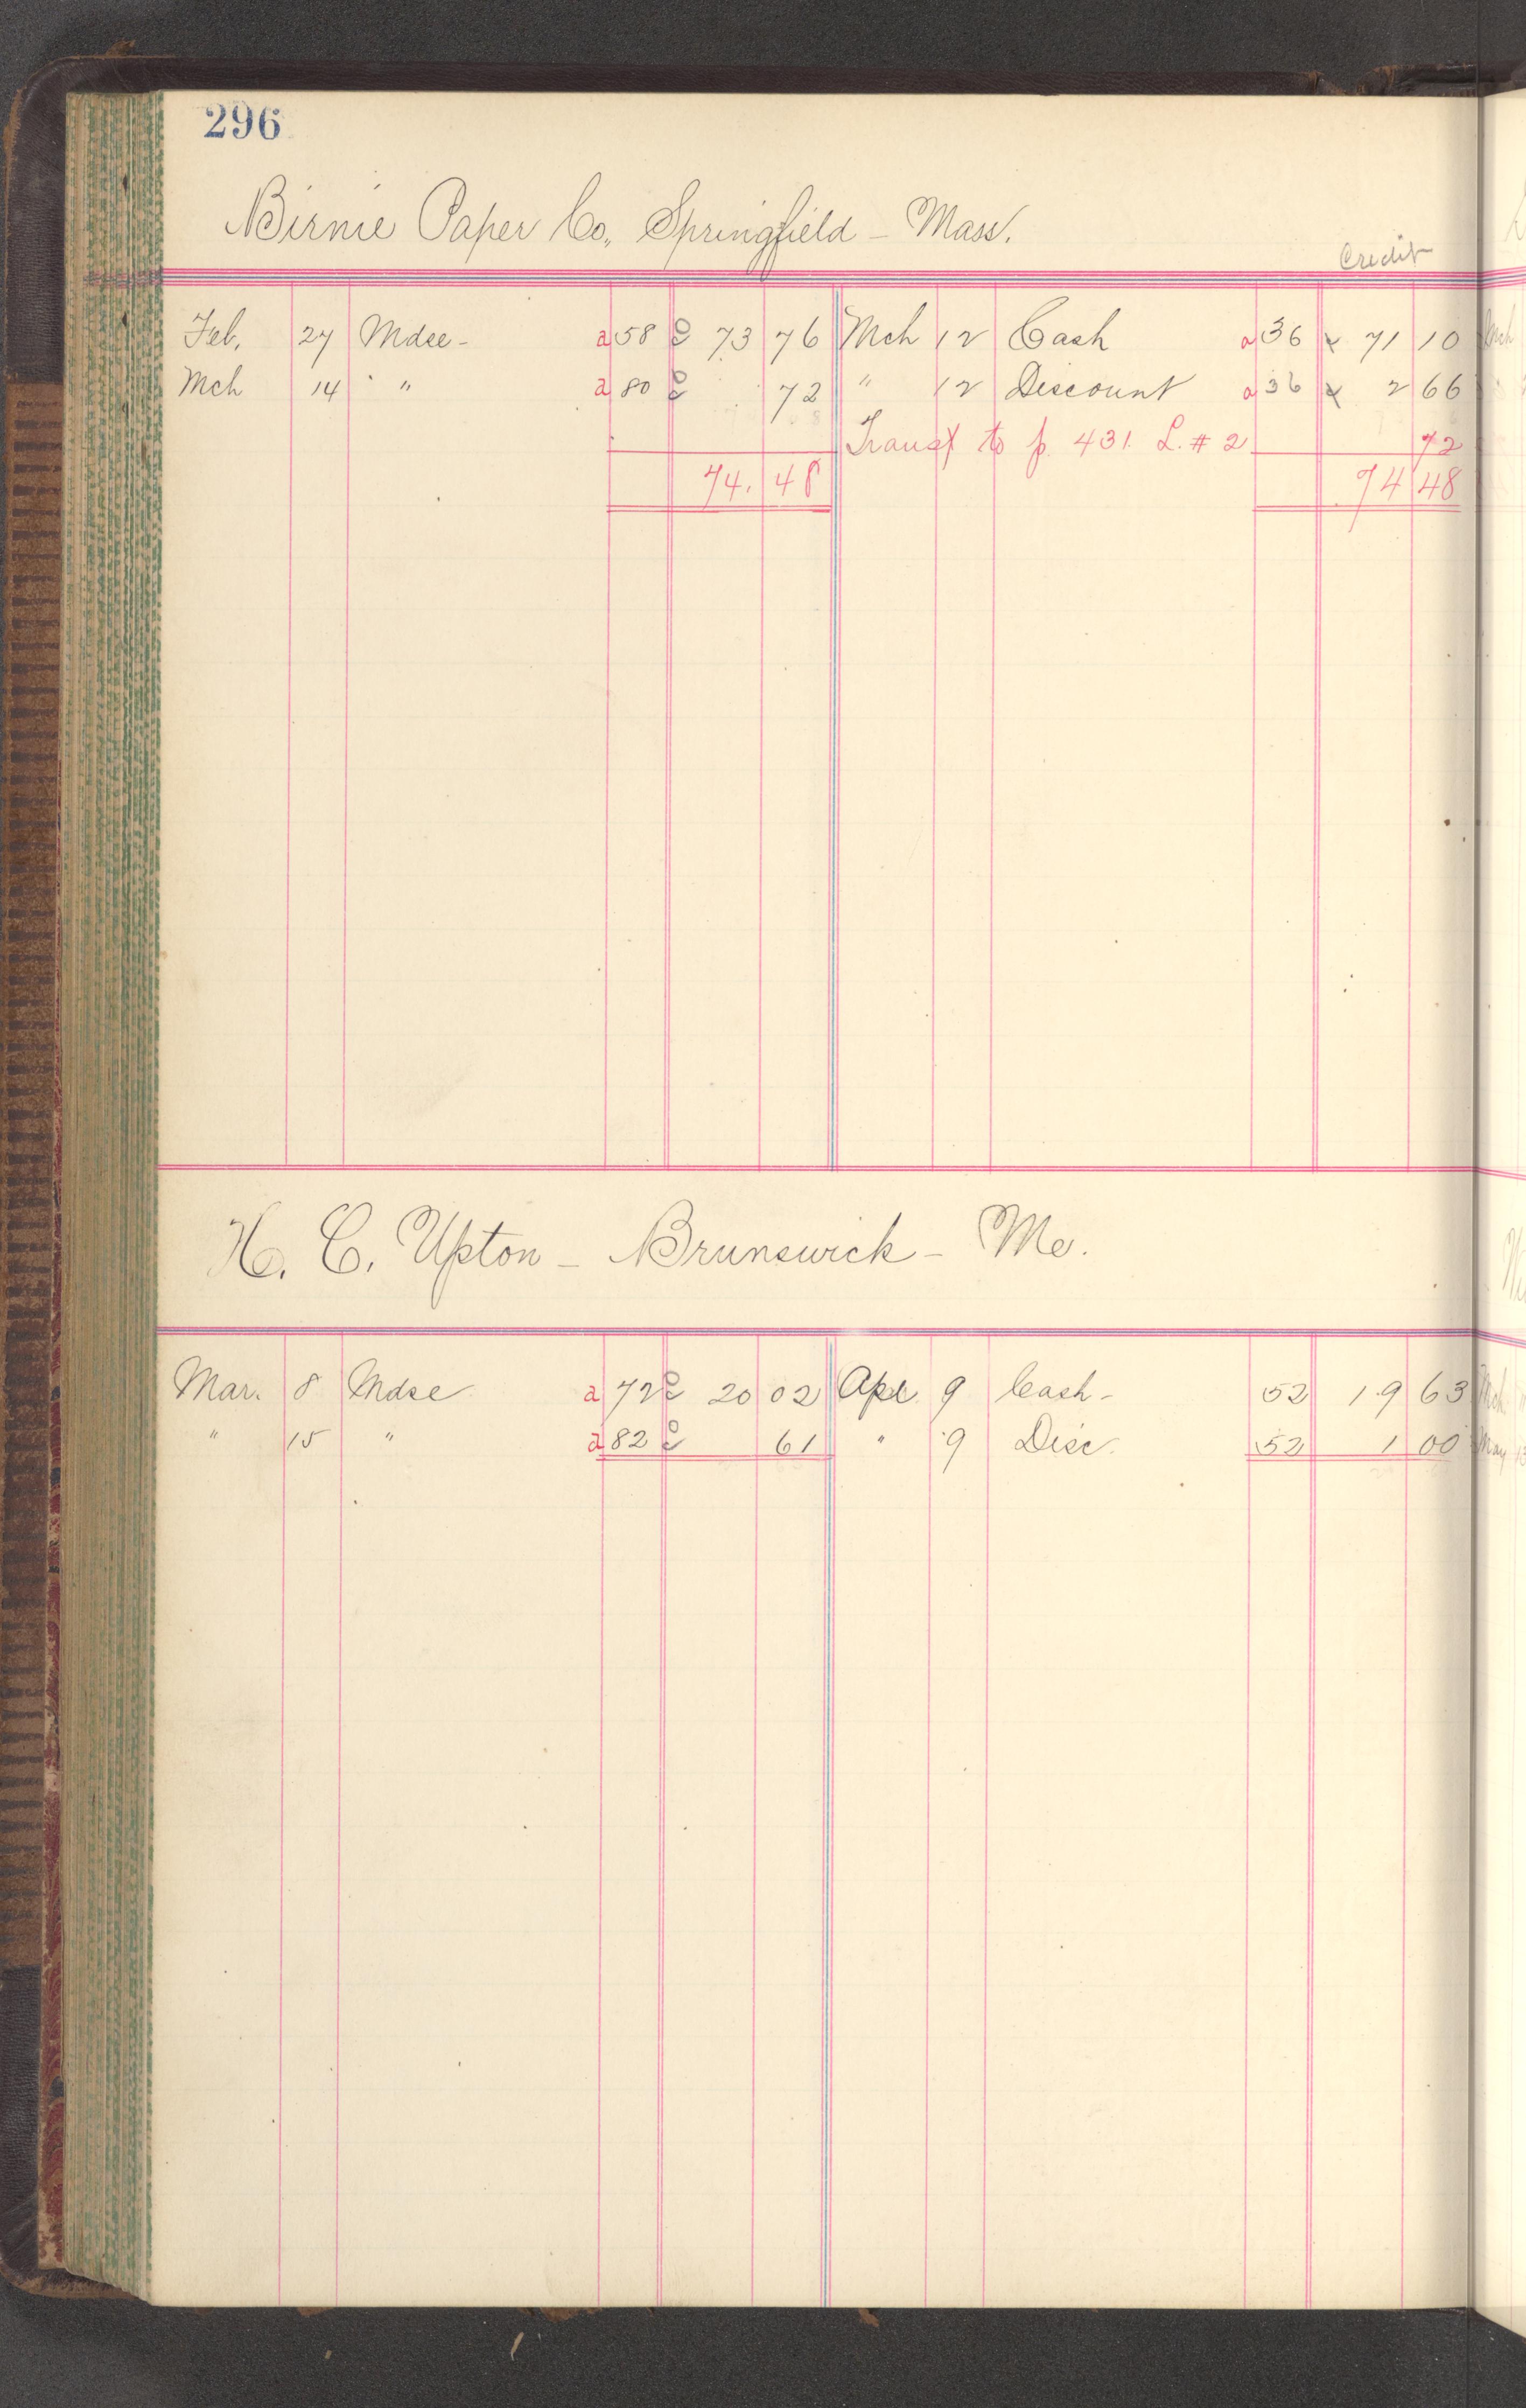 296
Birnie Paper Co., Springfield - Mass.
Credit
Feb. 27 Mdse - a 58 73 76 Mch 12 Cash a 36 71 10
Mch 14 " a 80 72 " 12 Discount a 36 2 66
Transf to p. 431. L. # 2 72
74. 48 74 48
H. C. Upton - Brunswick - Me.
Mar. 8 Mdse a 72 20 02 Apl. 9 Cash - 52 19 63
" 15 " a 82 61 " 9 Disc. 52 1 00